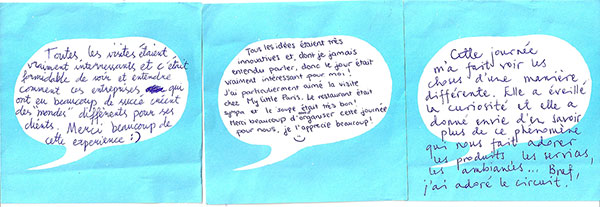 Toutes les visites étaient
vraiment interressants et c'était
formidable de voir et entendre
comment ces entreprises qui
ont eu beaucoup de succè créent
des "mondes" différents pour ses
clients. Merci beaucoup de
cette experience :)
Tous les idées étaient très
innovatives et, dont je jamais
entendu parler, donc le jour était
vraiment intéressant pour moi!
J'ai particulièrement aimé la visite
chez My Little Paris. Le restaurant était
sympa et le soupe était très bon!
Merci beaucoup d'organiser cette journée
pour nous, je l'apprécie beaucoup!
Cette journée
m'a fait voir les
choses d'une manière
différente. Elle a éveillé
la curiosité et elle a
donné envie d'en savoir
plus de ce phénomène
qui nous fait adorer
les produits, les services,
les ambiances... Bref,
j'ai adoré le circuit!